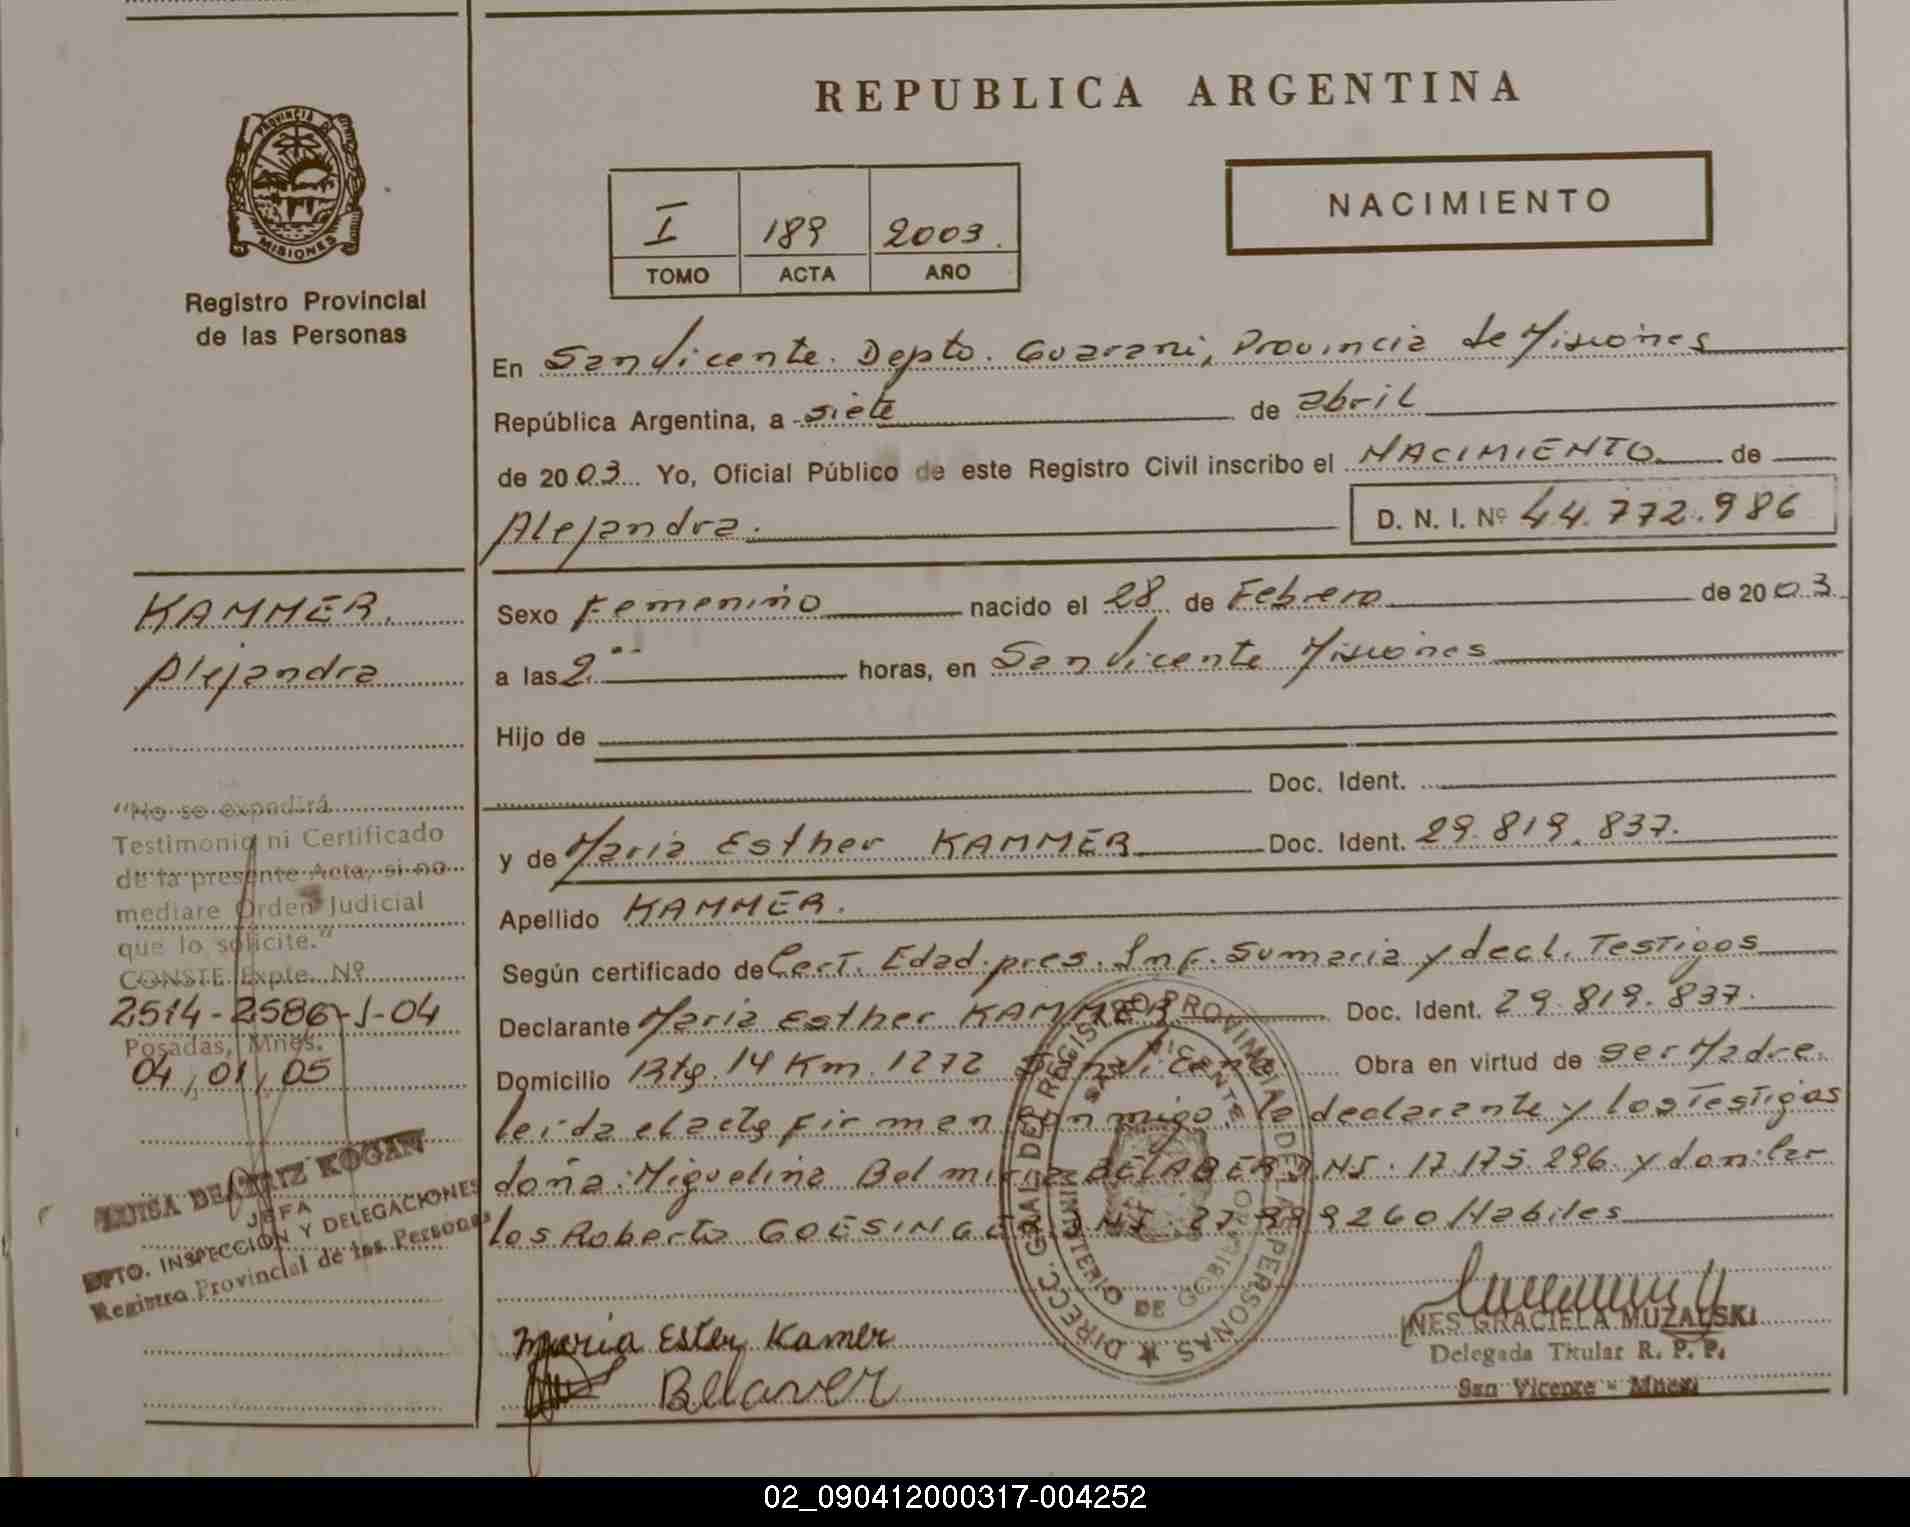 REPUBLICA ARGENTINA
PROVINCIA DE
MISIONES
Registro Provincial
de las Personas
I 189 2003.
TOMO ACTA AÑO
NACIMIENTO
En San Vicente. Depto. Guarani, Provincia de Misiones
República Argentina, a siete de abril
de 2003 Yo, Oficial Público de este Registro Civil inscribo el NACIMIENTO de
Alejandra. D. N. I. Nº 44.772.986
KAMMER.
Alejandra
Sexo Femenino nacido el 28 de Febrero de 2003.
a las 2.00 horas, en San Vicente Misiones
Hijo de
Doc. Ident.
y de Maria Esther KAMMER Doc. Ident. 29.819.837.
Apellido KAMMER.
Según certificado de Cert. Edad. pres. Inf. Sumaria y decl. Testigos
Declarante Maria Esther KAMMER Doc. Ident. 29.819.837.
Domicilio Rta. 14 Km. 1272 San Vicente Obra en virtud de ser Madre.
leida el acta firman conmigo. la declarante y los Testigos
doña: Miguelina Belmira BELABER DNI. 17.175.296. y don: Car
los Roberto GOESINGER DNI. 260 Habiles
"No se expedirá
Testimonio ni Certificado
de la presente Acta, si no
mediare Orden Judicial
que lo solicite."
CONSTE Expte. Nº
2514-2586-J-04
Posadas, Mnes.
04,01,05
LUISA BEATRIZ KOGAN
JEFA
DPTO. INSPECCION Y DELEGACIONES
Registro Provincial de las Personas
DIRECC. GRAL DEL REGISTRO PROVINCIAL DE LA PERSONAS
SAN VICENTE
MINISTERIO DE GOBIERNO
María Ester Kamer
Belaver
INES GRACIELA MUZALSKI
Delegada Titular R. P. P.
San Vicente - Mnes.
02_090412000317-004252